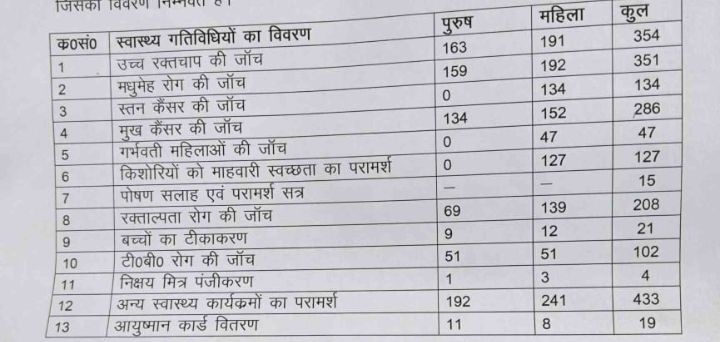 जिसका विवरण निम्नवत है।
क०सं० स्वास्थ्य गतिविधियों का विवरण पुरुष महिला कुल
1 उच्च रक्तचाप की जॉच 163 191 354
2 मधुमेह रोग की जॉच 159 192 351
3 स्तन कैंसर की जॉच 0 134 134
4 मुख कैंसर की जॉच 134 152 286
5 गर्भवती महिलाओं की जॉच 0 47 47
6 किशोरियों को माहवारी स्वच्छता का परामर्श 0 127 127
7 पोषण सलाह एवं परामर्श सत्र – – 15
8 रक्ताल्पता रोग की जॉच 69 139 208
9 बच्चों का टीकाकरण 9 12 21
10 टी०बी० रोग की जॉच 51 51 102
11 निक्षय मित्र पंजीकरण 1 3 4
12 अन्य स्वास्थ्य कार्यक्रमों का परामर्श 192 241 433
13 आयुष्मान कार्ड वितरण 11 8 19